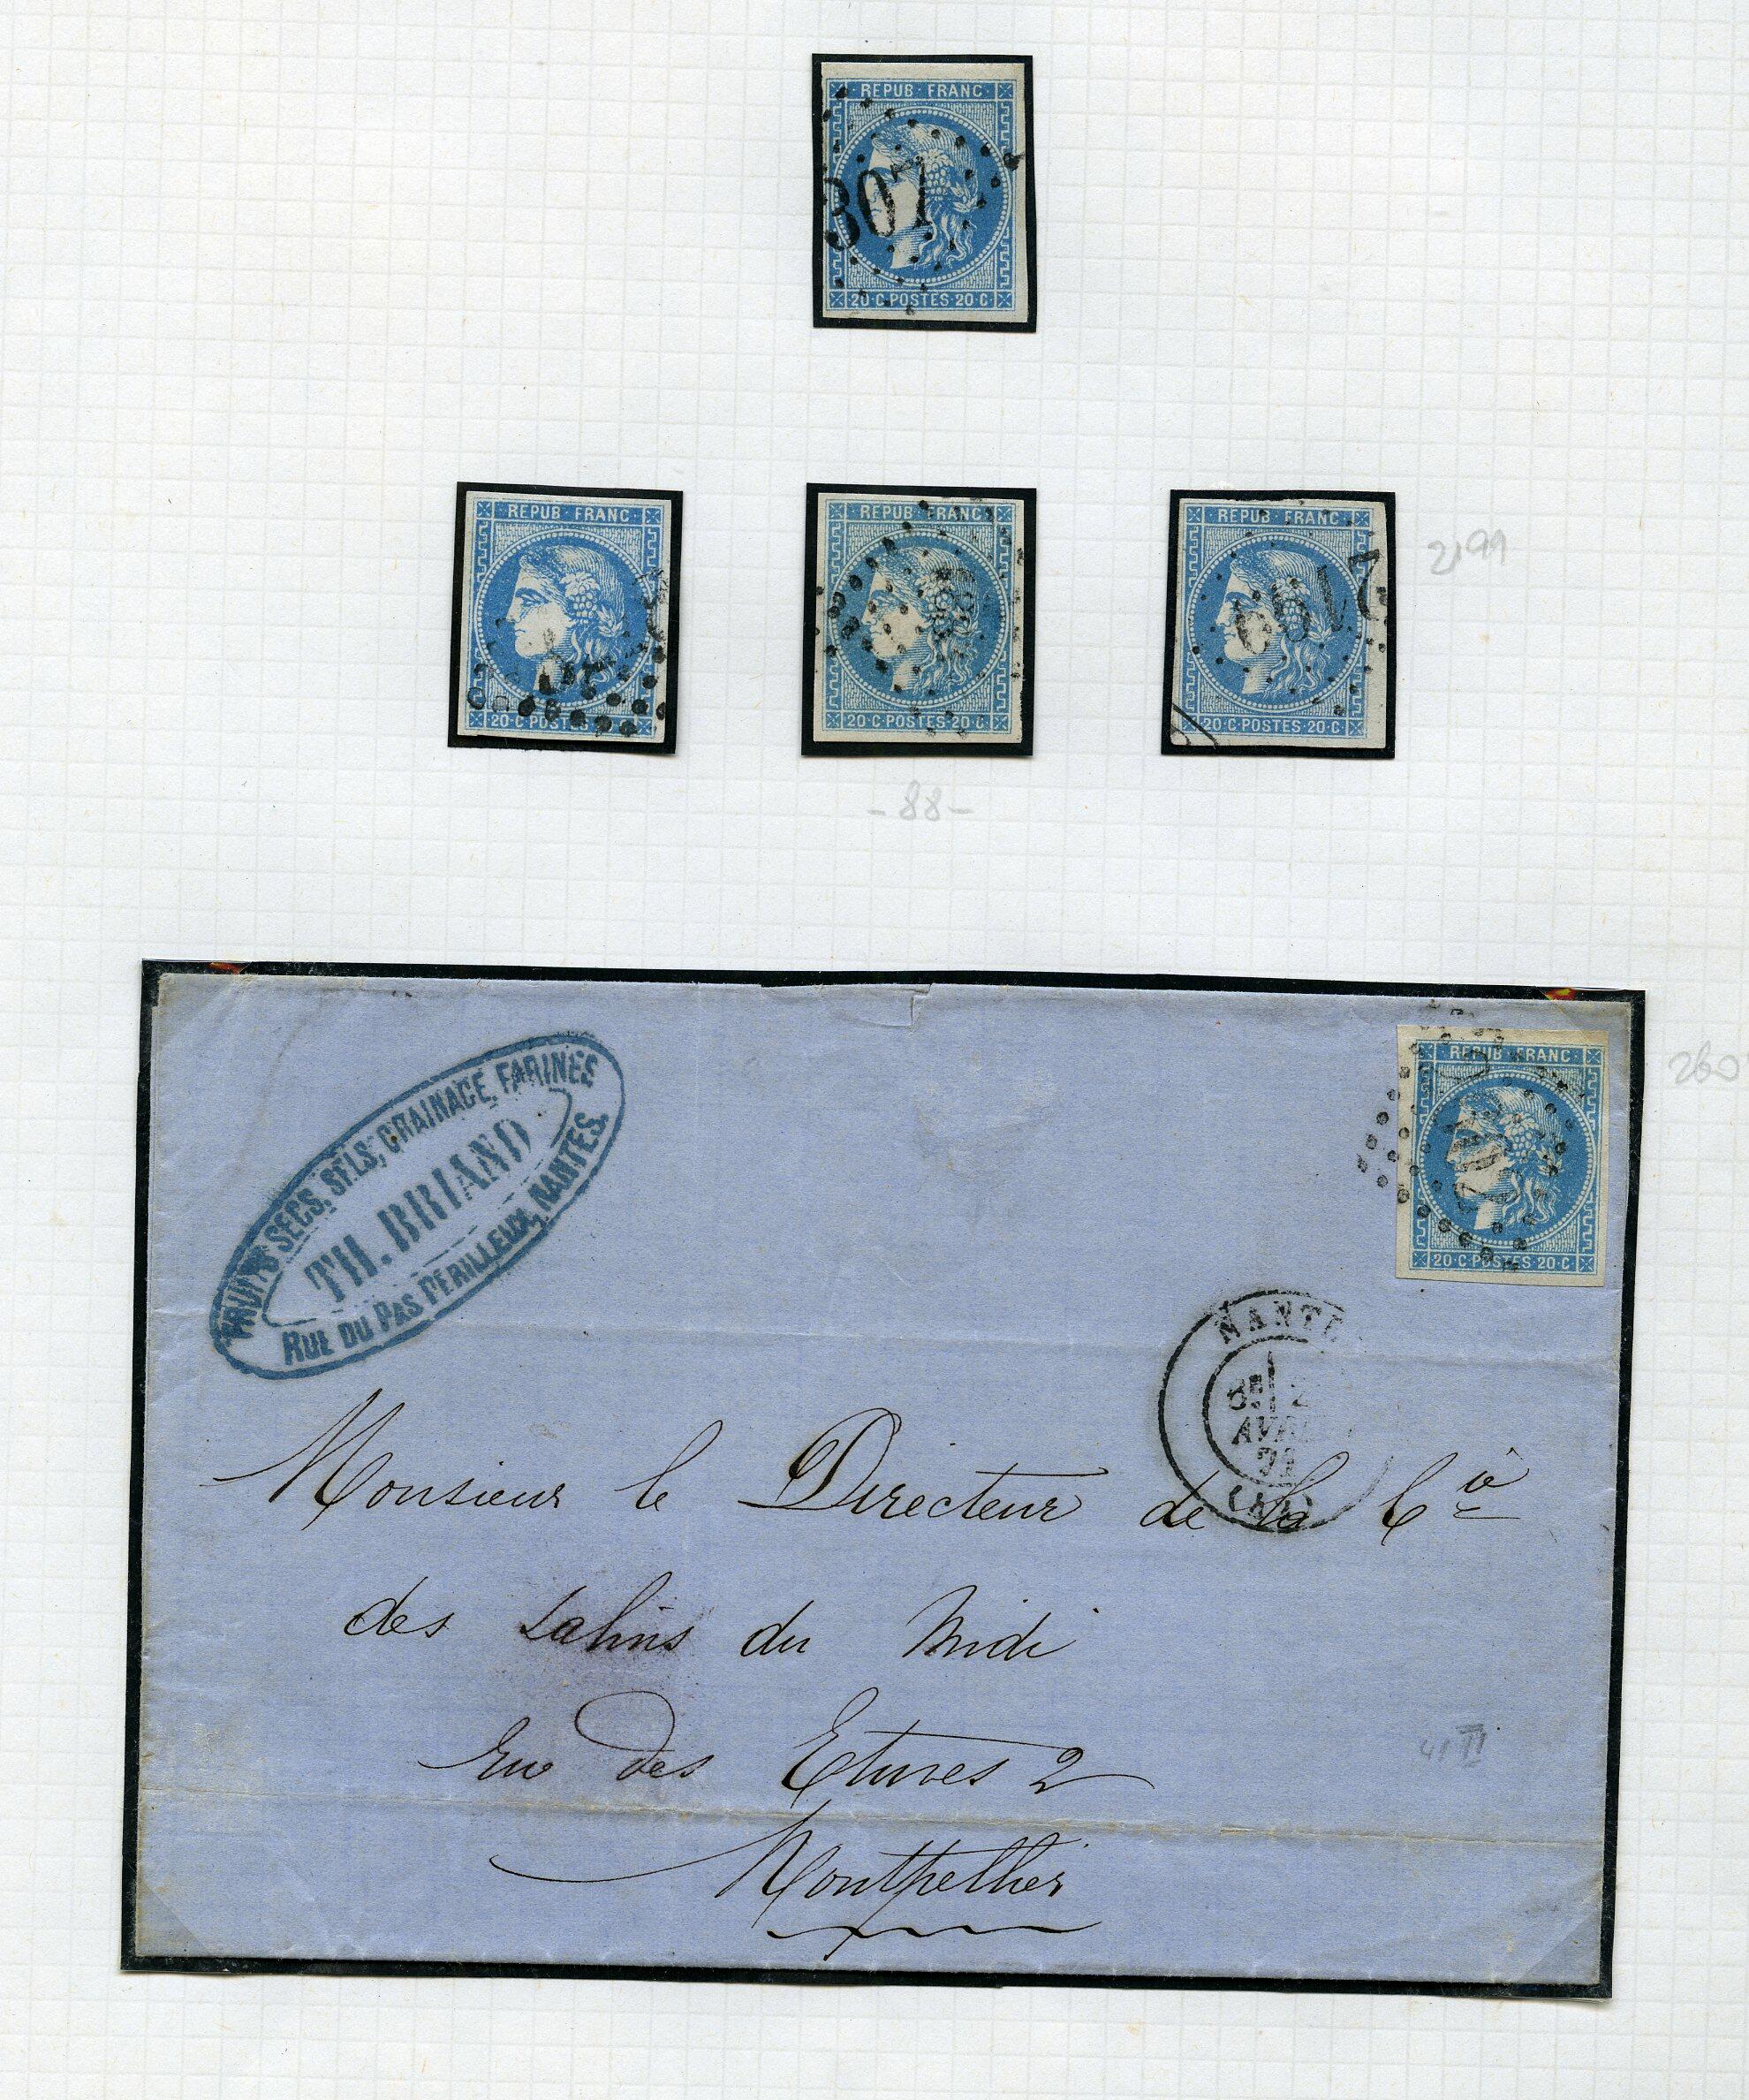 REPUB · FRANC
307
20 · C · POSTES · 20 · C
REPUB · FRANC
20 · C · POSTES
REPUB · FRANC
20 · C · POSTES · 20 · C
REPUB · FRANC
2199
20 · C · POSTES · 20 · C
2199
- 88 -
REPUB · FRANC
20 · C · POSTES · 20 · C
260
FRUITS SECS, SELS, GRAINAGE, FARINES
TH. BRIAND
RUE DU PAS PERILLEUX, NANTES.
NANTE
AVRIL
71
(44)
Monsieur le Directeur de la Cie
des Salins du Midi
Rue des Etuves 2
Montpellier